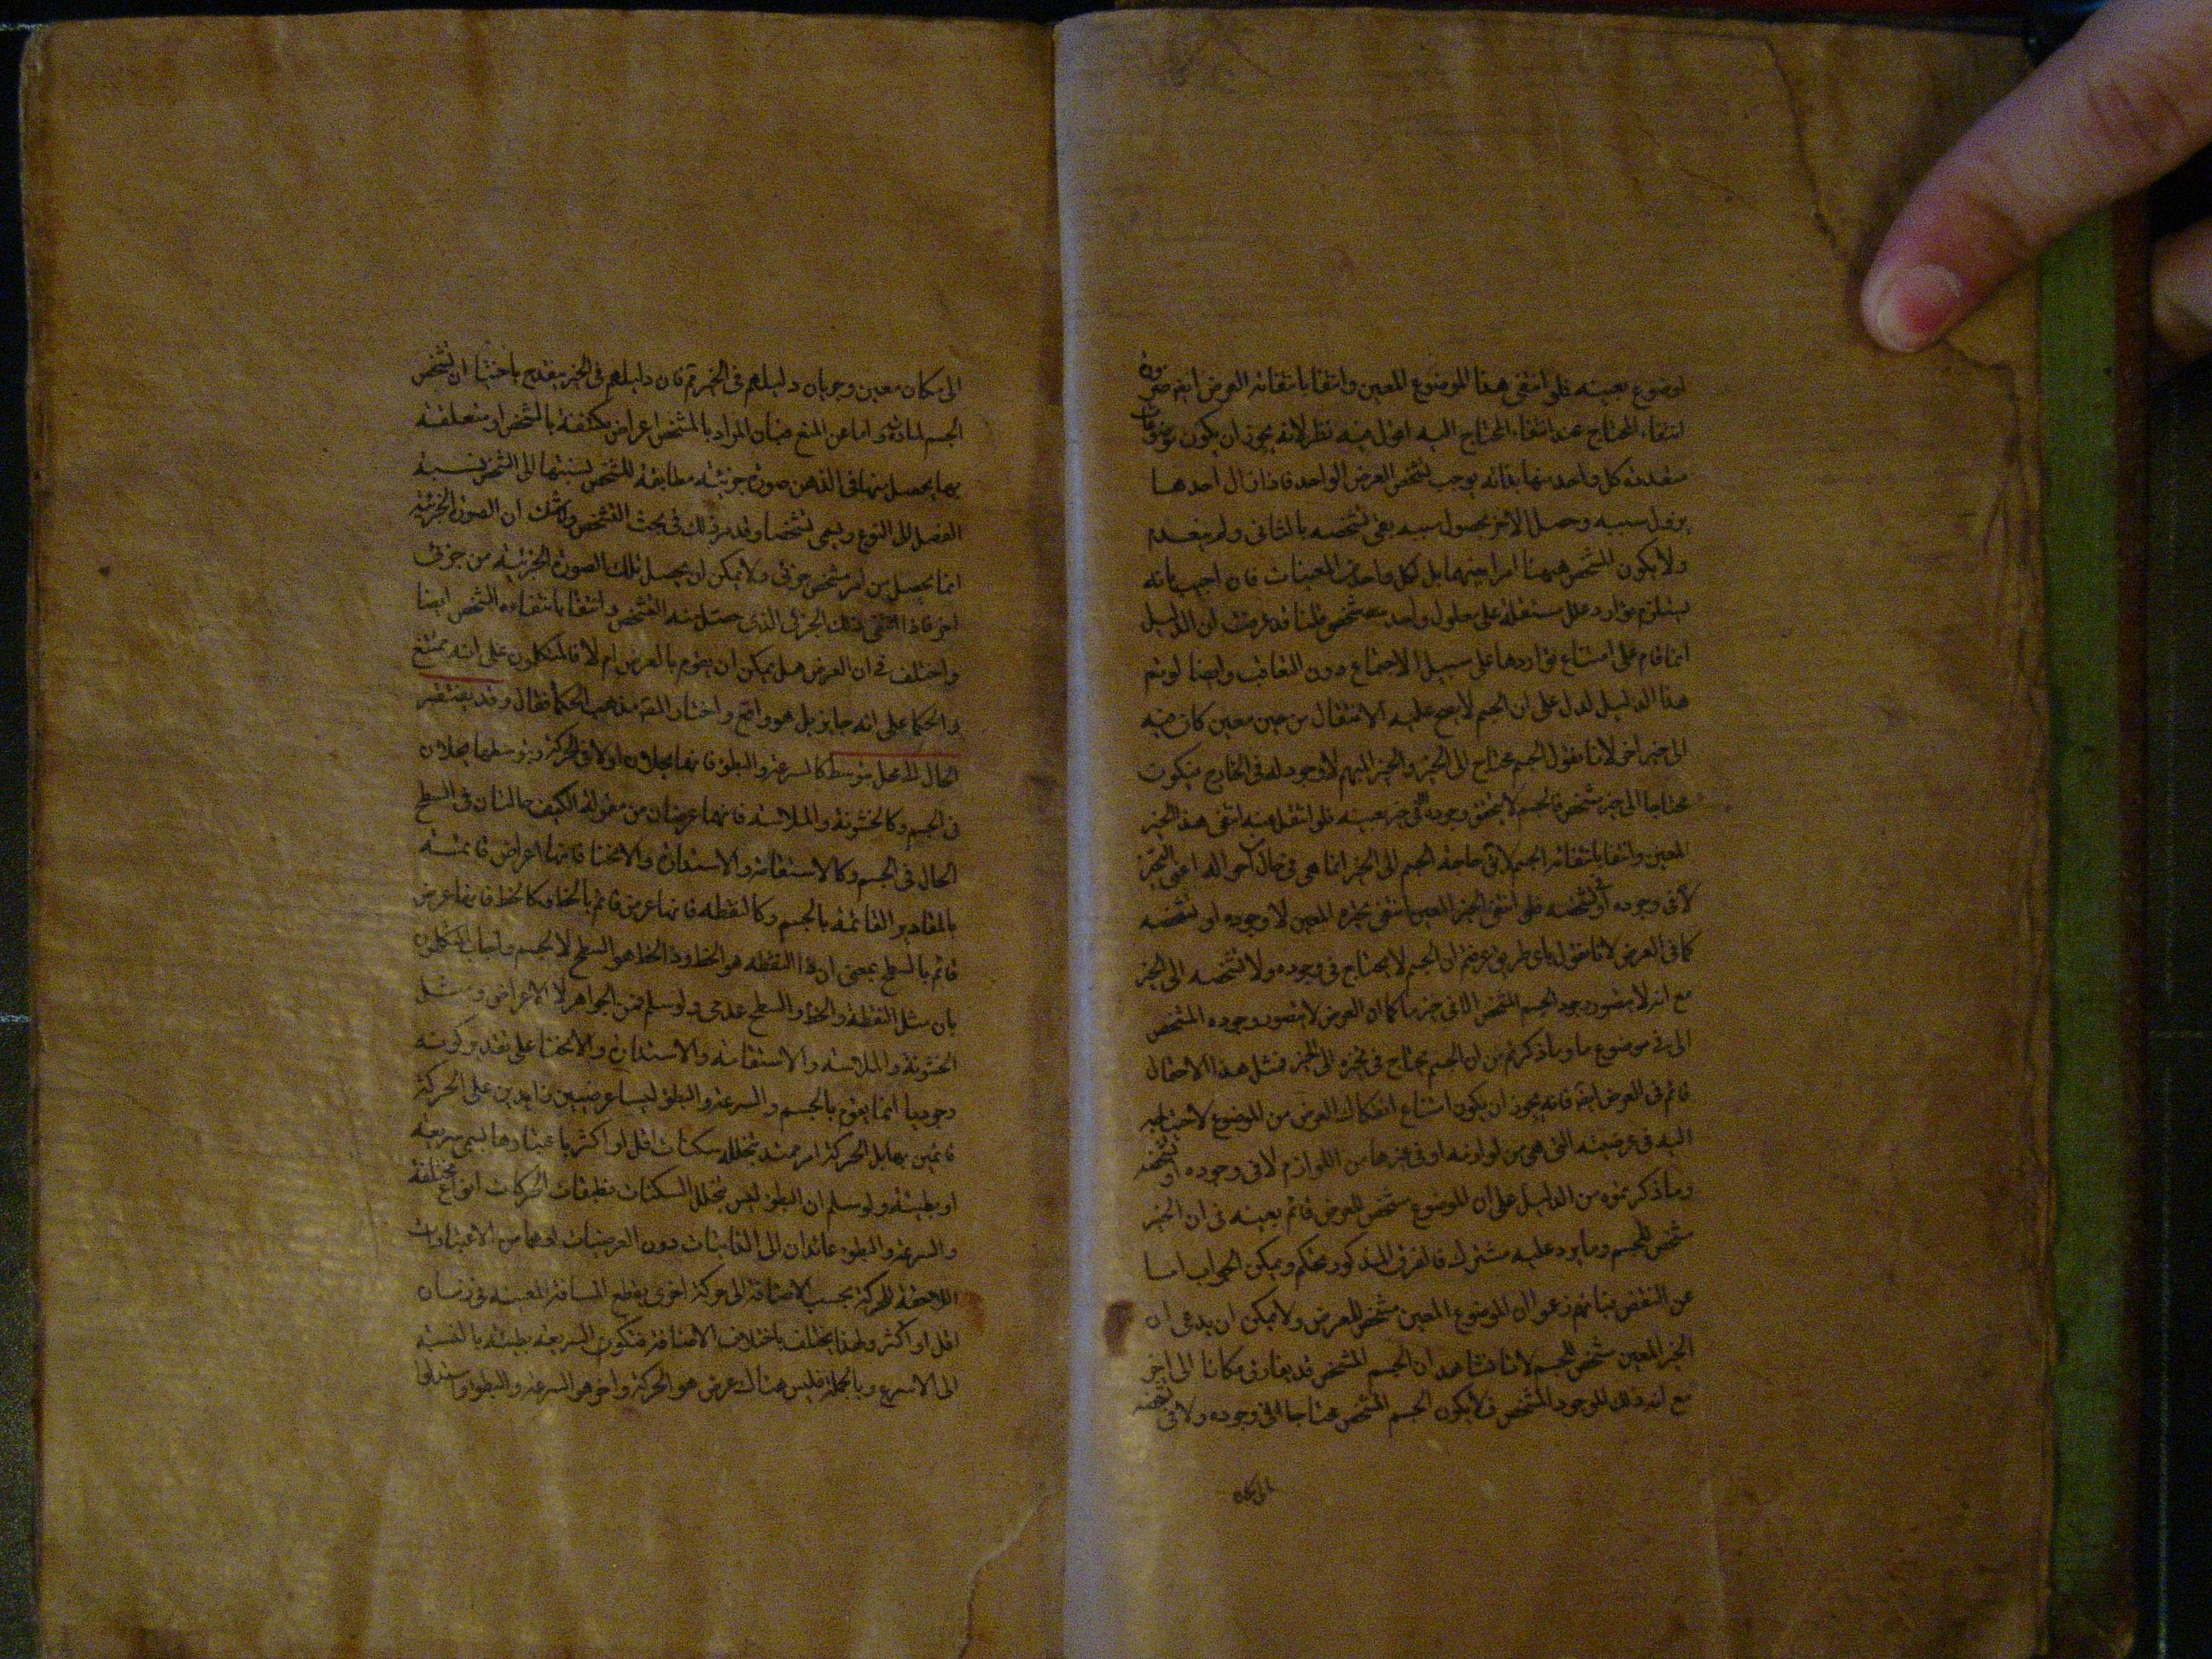 لموضوع بعينه فلو انتفى هذا الموضوع المعين وانتفا بانتفائه العرض ايضا ضرورة
انتفاء المحتاج عند انتفاء المحتاج اليه اقول فيه نظر لانه يجوز ان يكون موضوعات
متعددة كل واحد منها بذاته يوجب تشخص العرض الواحد فاذا زال احدها
يزول سببيه وحصل الاخر بحصول سببه بقى تشخصه بالثانى ولم ينعدم
ولا يكون المشخص ههنا امرا مبهما بل لكل واحد من المعينات فان اجيب بانه
يستلزم توارد علل مستقلة على معلول واحد شخصى قلنا قد عرفت ان الدليل
انما قام على امتناع تواردها على سبيل الاجتماع دون التعاقب وايضا لو تم
هذا الدليل لدل على ان الجسم لا يصح عليه الانتقال من حيز معين كان فيه
الى حيز اخر لانا نقول الجسم محتاج الى الحيز والحيز المبهم لا وجود له فى الخارج فيكون
محتاجا الى حيز مشخص فالجسم لا يتحقق وجوده الا فى حيز بعينه فلو انتقل عنه انتفى هذا الحيز
المعين وانتفا بانتفائه الجسم لا يق حاجة الجسم الى الحيز انما هى فى حال من احواله اعنى التحيز
لا فى وجوده او تشخصه فلو انتفى الحيز المعين انتفى تحيزه المعين لا وجوده او تشخصه
كما فى العرض لانا نقول باى طريق عرفتم ان الجسم لا يحتاج فى وجوده ولا تشخصه الى الحيز
مع انه لا يتصور وجود الجسم المشخص الا فى حيز ما كما ان العرض لا يتصور وجوده المشخص
الا فى موضوع ما وما ذكرتم من ان الجسم محتاج فى تحيزه الى الحيز فمثل هذا الاحتمال
قائم فى العرض ايضا فانه يجوز ان يكون امتناع انفكاك العرض من الموضوع لاحتياجه
اليه فى عرضيته التى هى من لوازمه او فى غيرها من اللوازم لا فى وجوده او تشخصه
وما ذكرتموه من الدليل على ان الموضوع مشخص للعرض قائم بعينه فى ان الحيز
مشخص للجسم وما يرد عليه مشترك فالفرق المذكور تحكم ويمكن الجواب اما
عن النقض فبانهم زعموا ان الموضوع المعين مشخص للعرض ولا يمكن ان يدعى ان
الحيز المعين مشخص للجسم لانا نشاهد ان الجسم المشخص قد يفارق مكانا الى اخر
مع انه ذلك الموجود المشخص فلا يكون الجسم المشخص محتاجا لا فى وجوده ولا فى تشخصه
الى مكان
الى مكان معين وجريان دليلهم فى الحيز فان دليلهم فى الحيز يقدح باحتياج تشخص
الجسم لمادته واما عن المنع فبان المراد بالمشخص اعراض مكتنفة بالشخص او متعلقة
بها يحصل منها فى الذهن صورة جزئية مطابقة للشخص نسبتها الى الشخص نسبة
الفصل الى النوع ويسمى تشخصا وقد مر ذلك فى بحث التشخص ولا شك ان الصورة الجزئية
انما يحصل من امر مشخص جزئى ولا يمكن ان يحصل تلك الصورة الجزئية من جزئى
اخر فاذا انتفى ذلك الجزئى الذى حصل منه التشخص وانتفا بانتفاءه الشخص ايضا
واختلف فى ان العرض هل يمكن ان يقوم بالعرض ام لا فالمتكلمون على انه يمتنع
والحكما على انه جايز بل هو واقع واختار المص مذهب الحكما فقال وقد يفتقر
الحال الى محل متوسط كالسرعة والبطؤ فانهما يحلان اولا فى الحركة وبتوسطها يحلان
فى الجسم وكالخشونة والملاسة فانهما عرضان من مقولة الكيف حالتان فى السطح
الحال فى الجسم وكالاستقامة والاستدارة والانحنا فانها اعراض قائمة
بالمقادير القائمة بالجسم وكالنقطة فانها عرض قائم بالخط وكالخط فانها عرض
قائم بالسطح بمعنى ان ذا النقطة هو الخط وذا الخط هو السطح لا الجسم واجاب المتكلمون
بان مثل النقطة والخط والسطح عدمى ولو سلم فمن الجواهر لا الاعراض ومثل
الخشونة والملاسة والاستقامة والاستدارة والانحنا على تقدير كونه
وجوديا انما يقوم بالجسم والسرعة والبطؤ ليسا عرضيين زايدين على الحركة
قائمين بها بل الحركة امر ممتد يتخلله سكنات اقل او اكثر باعتبارها يسمى سريعة
او بطيئة ولو سلم ان البطؤ ليس لتخلل السكنات فطبقات الحركات انواع مختلفة
والسرعة والبطؤ عائدان الى الذاتيات دون العرضيات او هما من الاعتبارات
اللاحقة للحركة بحسب الاضافة الى حركة اخرى يقطع المسافة المعينة فى زمان
اقل او اكثر ولهذا يختلف باختلاف الاضافة فتكون السريعة بطيئة بالنسبة
الى الاسرع وبالجملة فليس هناك عرض هو الحركة واخر هو السرعة والبطؤ